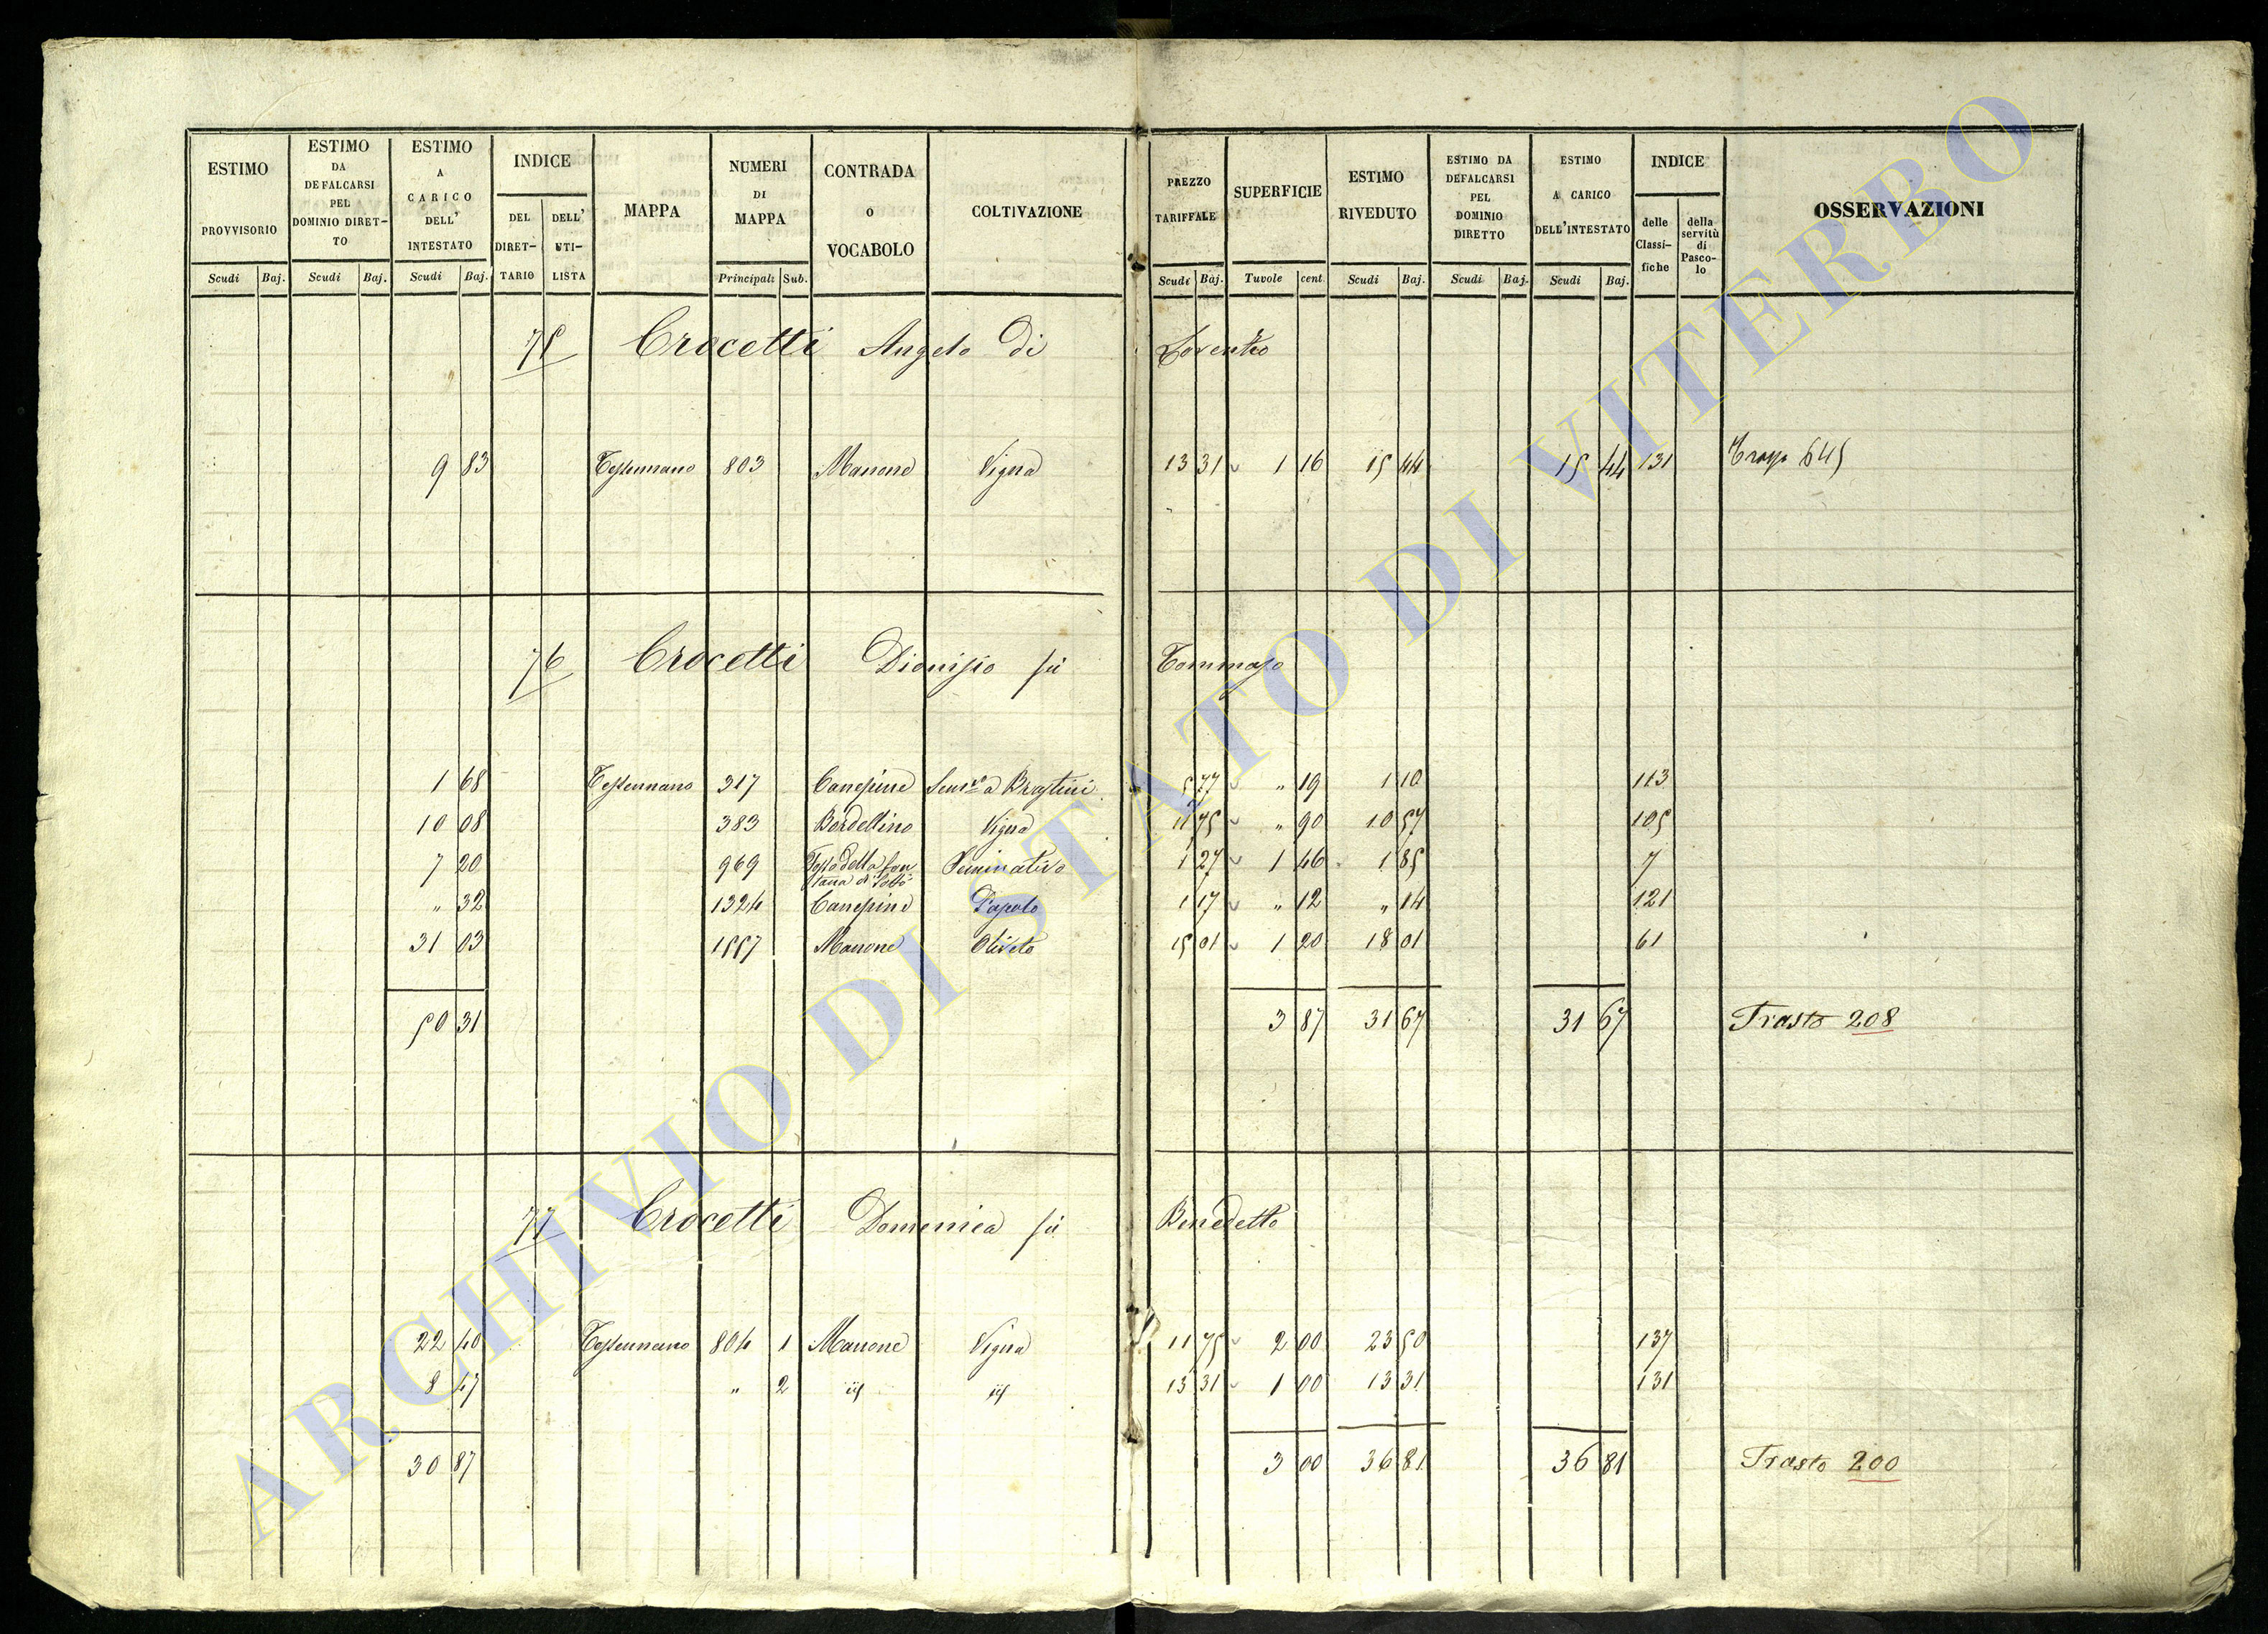 ESTIMO PROVVISORIO
ESTIMO DA DEFALCARSI PEL DOMINIO DIRET-TO
ESTIMO A CARICO DELL' INTESTATO
INDICE
DEL DIRET-TARIO
DELL' UTI-LISTA
MAPPA
NUMERI DI MAPPA
CONTRADA O VOCABOLO
COLTIVAZIONE
PREZZO TARIFFALE
SUPERFICIE
ESTIMO RIVEDUTO
ESTIMO DA DEFALCARSI PEL DOMINIO DIRETTO
ESTIMO A CARICO DELL'INTESTATO
INDICE
delle Classi-fiche
della servitù di Pasco-lo
OSSERVAZIONI
Scudi Baj. Scudi Baj. Scudi Baj. Principali Sub. Scudi Baj. Tavole cent. Scudi Baj. Scudi Baj. Scudi Baj.
75 Crocetti Angelo di Lorenzo
9 83 Tessennano 803 Marrone Vigna 13 31 1 16 15 44 15 44 131 645
76 Crocetti Dionisio fù Tommaso
1 68 Tessennano 317 Canepine 5 77 " 19 1 10 113
10 08 383 Bordellino Vigna 11 75 " 90 10 57 105
7 20 969 Fosso della Fontana di Sotto Seminativo 1 27 1 46 1 85 7
" 32 1324 Canepine 1 17 " 12 " 14 121
31 03 1557 Marrone Oliveto 15 01 1 20 18 01 61
50 31 3 87 31 67 31 67 Trasto 208
77 Crocetti Domenica fù Benedetto
22 40 Tessennano 804 1 Marrone Vigna 11 75 2 00 23 50 137
8 47 " 2 13 31 1 00 13 31 131
30 87 3 00 36 81 36 81 Trasto 200
ARCHIVIO DI STATO DI VITERBO